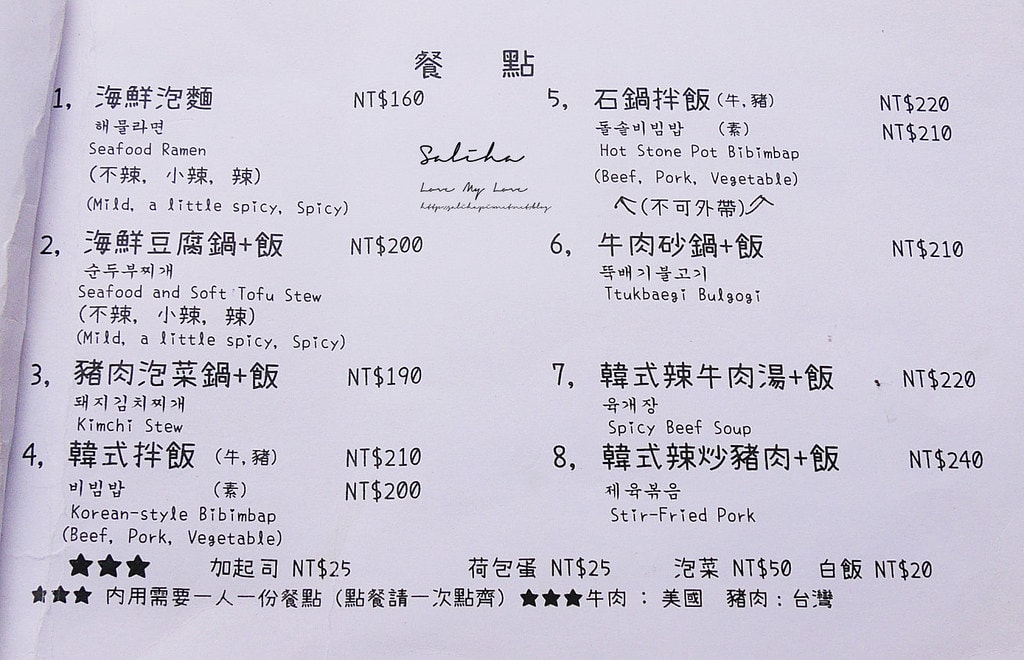 餐 點
1, 海鮮泡麵 NT$160
해물라면
Seafood Ramen
(不辣, 小辣, 辣)
(Mild, a little spicy, Spicy)
2, 海鮮豆腐鍋+飯 NT$200
순두부찌개
Seafood and Soft Tofu Stew
(不辣, 小辣, 辣)
(Mild, a little spicy, Spicy)
3, 豬肉泡菜鍋+飯 NT$190
돼지김치찌개
Kimchi Stew
4, 韓式拌飯 (牛,豬) NT$210
비빔밥 (素) NT$200
Korean-style Bibimbap
(Beef, Pork, Vegetable)
Saliha
Love My Love
5, 石鍋拌飯(牛,豬) NT$220
돌솥비빔밥 (素) NT$210
Hot Stone Pot Bibimbap
(Beef, Pork, Vegetable)
(不可外帶)
6, 牛肉砂鍋+飯 NT$210
뚝배기불고기
Ttukbaegi Bulgogi
7, 韓式辣牛肉湯+飯 NT$220
육개장
Spicy Beef Soup
8, 韓式辣炒豬肉+飯 NT$240
제육볶음
Stir-Fried Pork
★★★ 加起司 NT$25 荷包蛋 NT$25 泡菜 NT$50 白飯 NT$20
★★★ 內用需要一人一份餐點 (點餐請一次點齊) ★★★牛肉 : 美國 豬肉 : 台灣